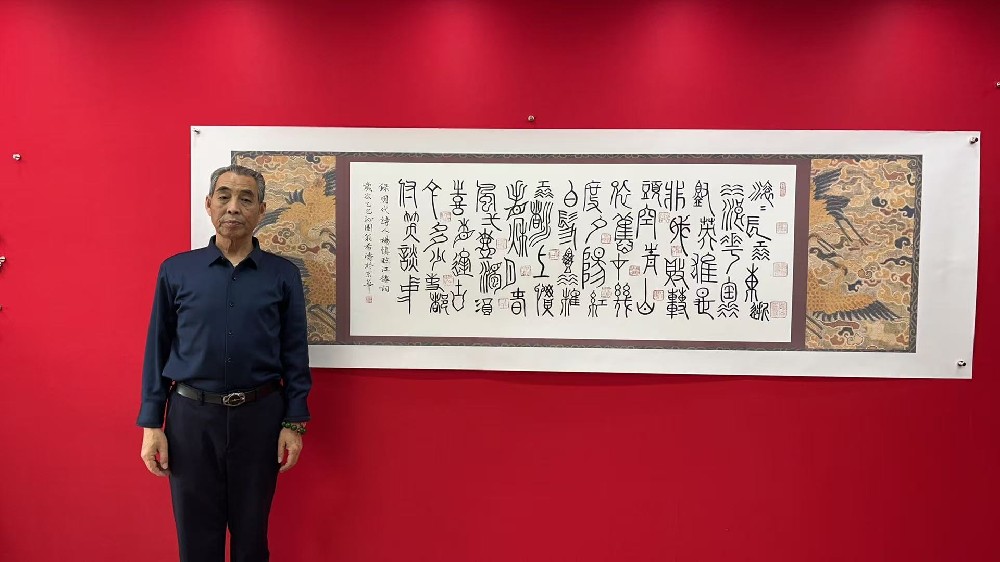 滾〻長江東逝
水浪花淘
盡英雄是
非成敗轉
頭空青山
依舊在幾
度夕陽紅
白髮漁樵
江渚上慣
看秋月春
風一壺濁酒
喜相逢古
今多少事都
付笑談中
錄明代詩人楊慎臨江僊詞
歲次乙巳於京華